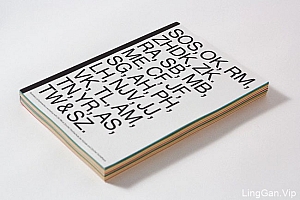 SOS, OK, RM,
ZHDK, ZK,
RA, SB, MB,
ME, CF, JF,
SG, AH, PH,
LH, NJV, JJ,
VK, TL, AM,
TN, YR, AS,
TW & SZ.
LingGan.Vip